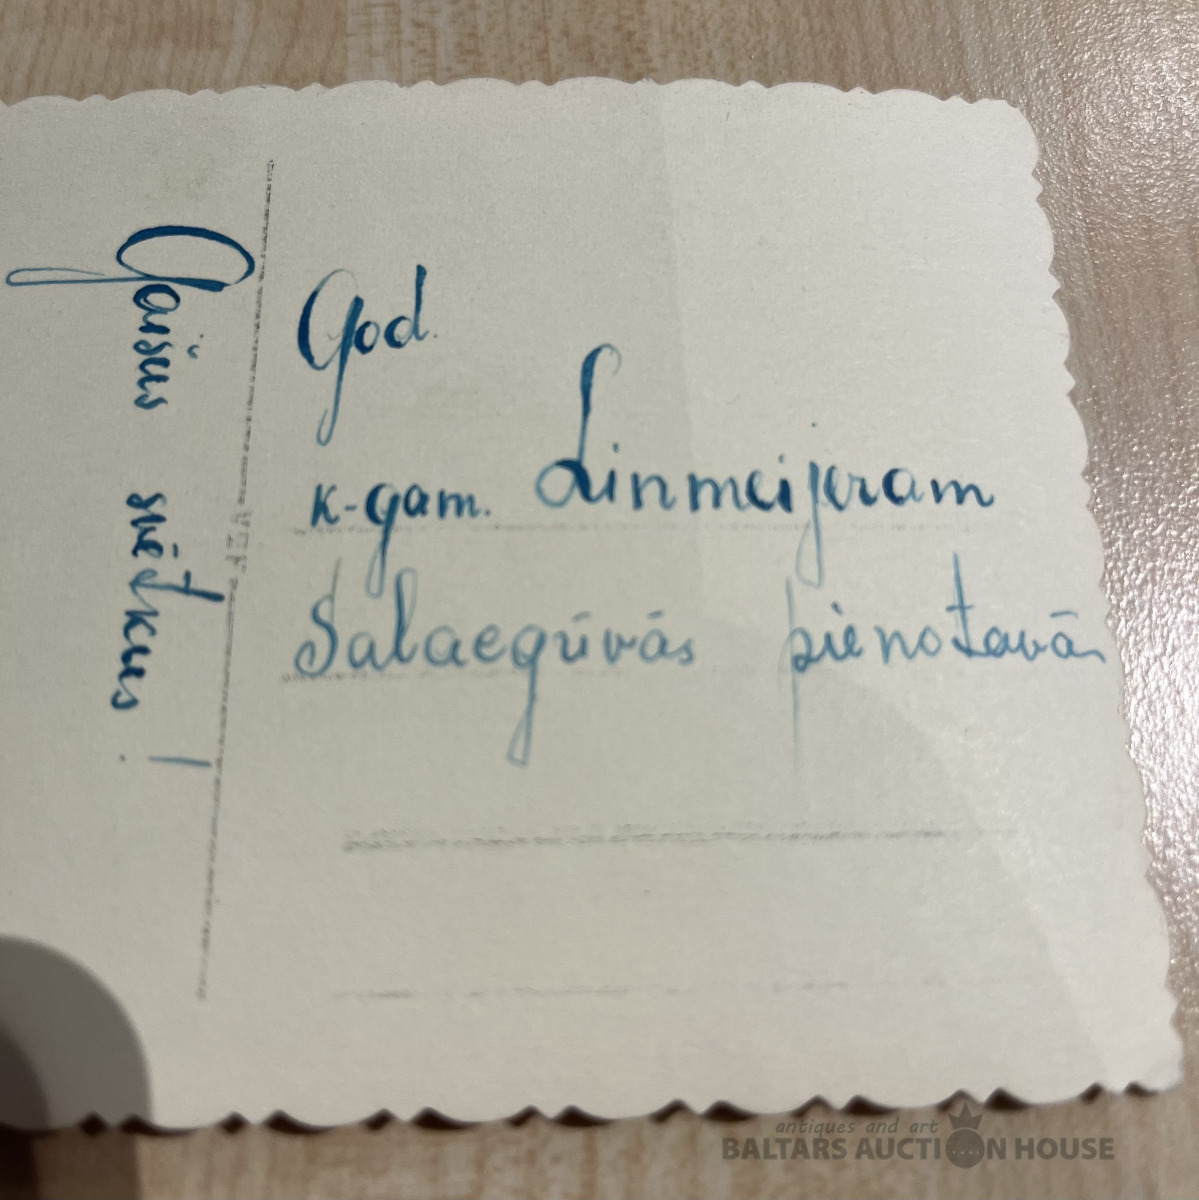 Gaišus svētkus!
God.
k-gam. Linmeijeram
Salaegūvās pienotavā
antiques and art
BALTARS AUCTION HOUSE